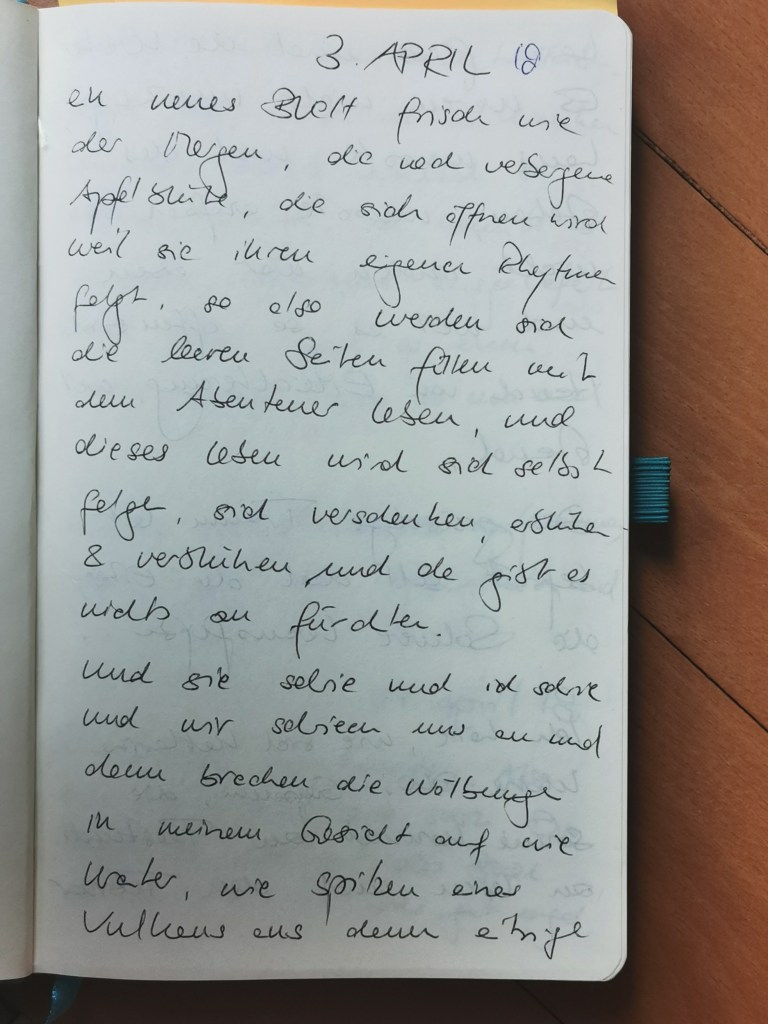 3. APRIL 18
ein neues Blatt frisch wie
der Morgen, die noch verborgene
Apfelblüte, die sich öffnen wird
weil sie ihrem eigenen Rhytmen
folgt, so also werden sich
die leeren Seiten füllen mit
dem Abenteuer Leben, und
dieses Leben wird sich selbst
folgen, sich verschenken, erblühen
& verblühen und da gibt es
nichts zu fürchten.
Und sie schrie und ich schrie
und wir schrieen uns an und
dann brachen die Wölbungen
in meinem Gesicht auf wie
Krater, wie Spitzen eines
Vulkans aus denen eitrige